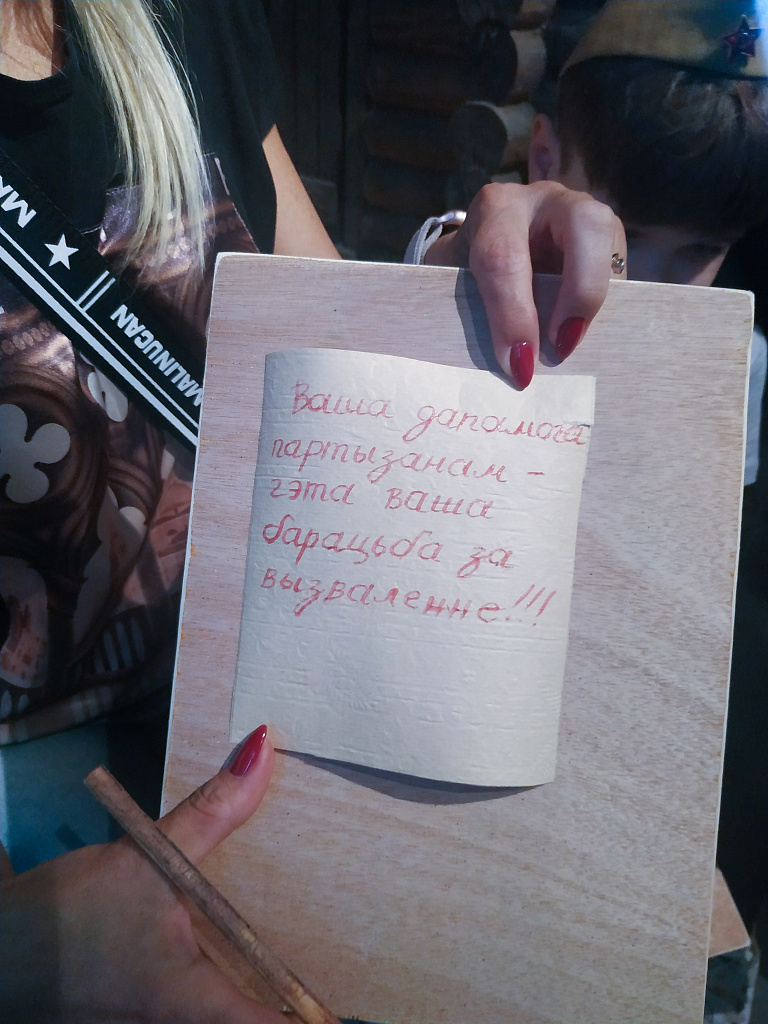 Ваша дапамога
партызанам -
гэта ваша
барацьба за
вызваленне!!!
MALINUCAN